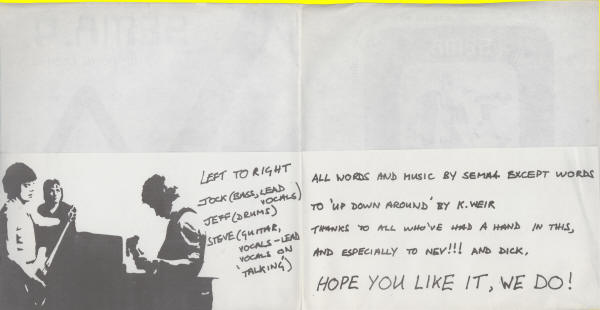 LEFT TO RIGHT
JOCK (BASS, LEAD
VOCALS)
JEFF (DRUMS)
STEVE (GUITAR,
VOCALS - LEAD
VOCALS ON
'TALKING')
ALL WORDS AND MUSIC BY SEMA4 EXCEPT WORDS
TO 'UP DOWN AROUND' BY K. WEIR
THANKS TO ALL WHO'VE HAD A HAND IN THIS,
AND ESPECIALLY TO NEV!!! AND DICK,
HOPE YOU LIKE IT, WE DO!